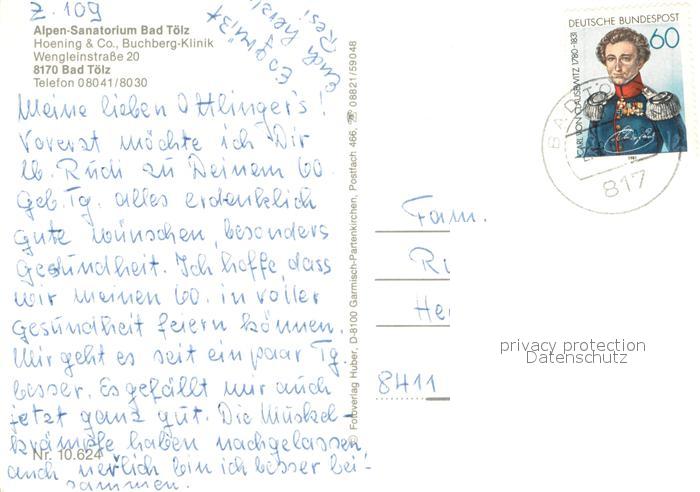 Z. 109
Alpen-Sanatorium Bad Tölz
Hoening & Co., Buchberg-Klinik
Wengleinstraße 20
8170 Bad Tölz
Telefon 08041/8030
Es grüßt
Euch herzl.
Resi
Meine lieben Ottlinger's!
Vorerst möchte ich Dir
lb. Rudi zu Deinem 60.
Geb. Tg. alles erdenklich
gute wünschen, besonders
Gesundheit. Ich hoffe, dass
wir meinen 60. in voller
Gesundheit feiern können.
Mir geht es seit ein paar Tg.
besser. Es gefällt mir auch
jetzt ganz gut. Die Muskel-
krämpfe haben nachgelassen
auch nervlich bin ich besser bei-
sammen.
Nr. 10.624
Fotoverlag Huber, D-8100 Garmisch-Partenkirchen, Postfach 466, ☎ 08821/59048
DEUTSCHE BUNDESPOST
60
CARL VON CLAUSEWITZ 1780-1831
1981
BAD TÖ
817
Fam.
Ru
He
8411
privacy protection
Datenschutz